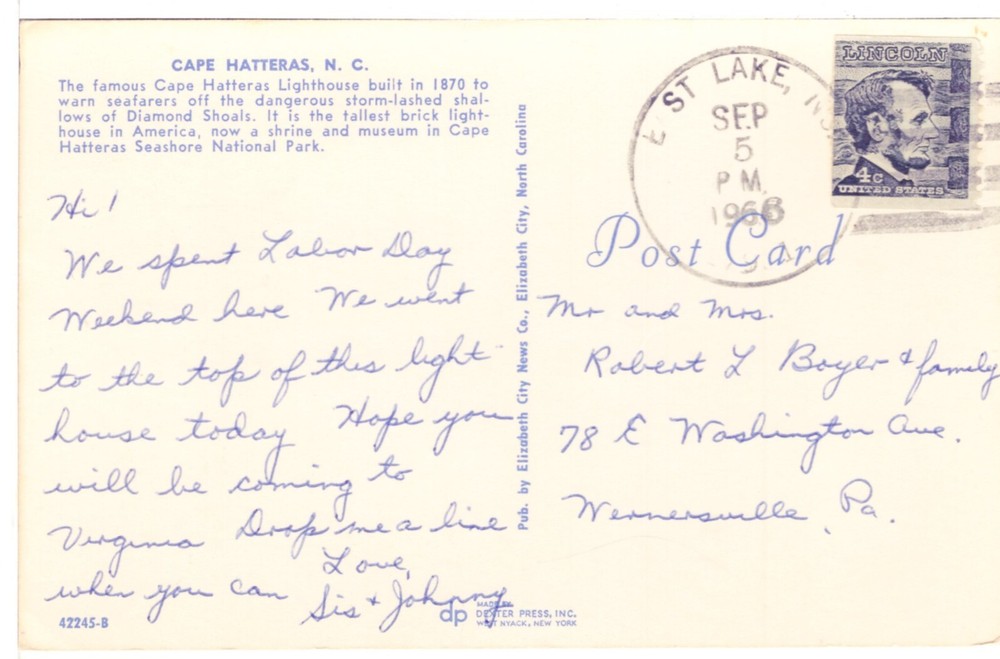 CAPE HATTERAS, N. C.
The famous Cape Hatteras Lighthouse built in 1870 to
warn seafarers off the dangerous storm-lashed shal-
lows of Diamond Shoals. It is the tallest brick light-
house in America, now a shrine and museum in Cape
Hatteras Seashore National Park.
Hi!
We spent Labor Day
Weekend here We went
to the top of this light
house today Hope you
will be coming to
Virginia Drop me a line
when you can
Love,
Sis + Johnny
42245-B
Pub. by Elizabeth City News Co., Elizabeth City, North Carolina
dp
MADE BY
DEXTER PRESS, INC.
WEST NYACK, NEW YORK
E ST LAKE, N.C.
SEP
5
PM
1966
LINCOLN
4c
UNITED STATES
Post Card
Mr and Mrs.
Robert L Boyer + family
78 E Washington Ave.
Wernersville, Pa.